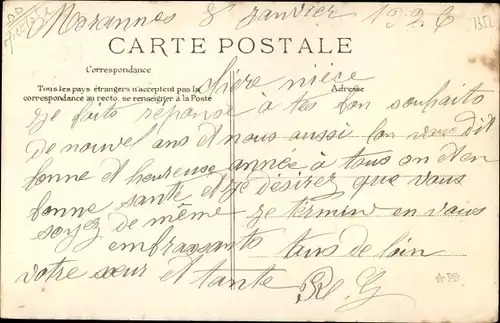 Morannes 8 janvier 1926
CARTE POSTALE
Correspondance
Tous les pays étrangers n'acceptent pas la
correspondance au recto. se renseigner à la Poste
Adresse
chère nièce
je faits réponse à tes bon souhaits
de nouvel ans et nous aussi on vous dit
bonne et heureuse année à tous on et en
bonne santé et je désirez que vous
soyez de même je termin en vous
embrassants tous de loin
votre sœur et tante
R. G